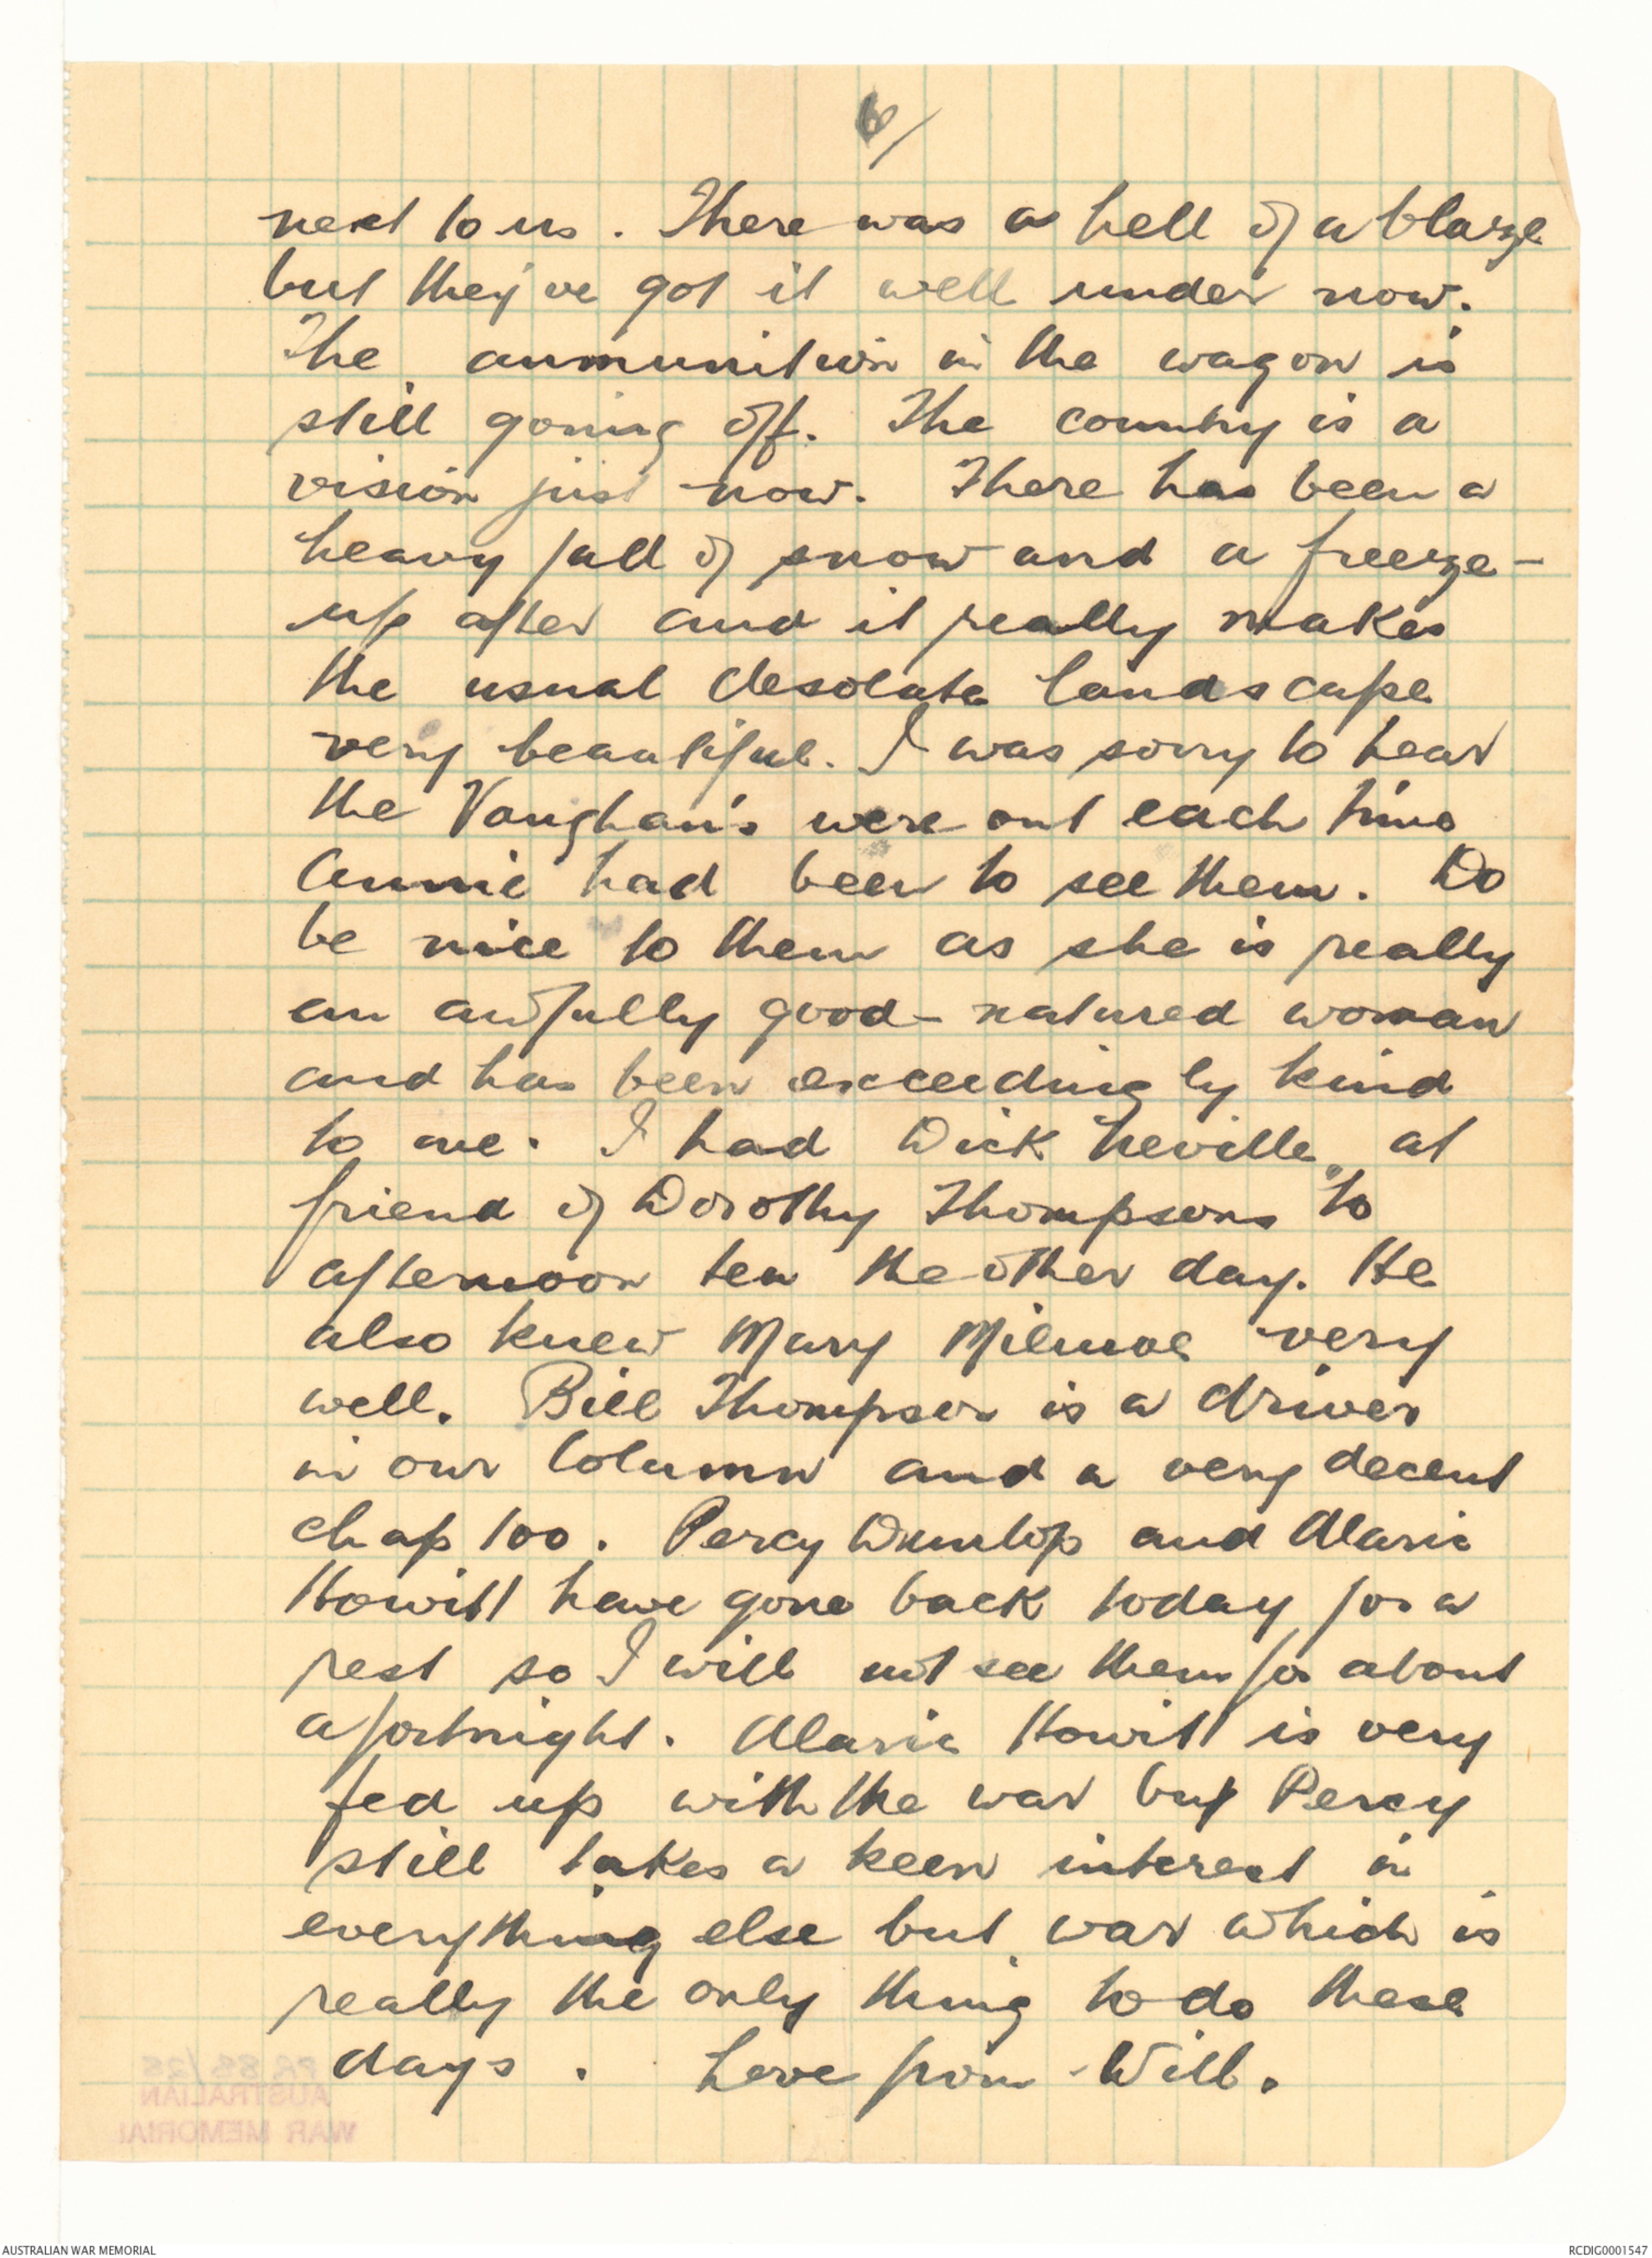 6/
next to us. There was a hell of a blaze
but they've got it well under now.
The ammunition in the wagon is
still going off. The country is a
vision just now. There has been a
heavy fall of snow and a freeze-
up after and it really makes
the usual desolate landscape
very beautiful. I was sorry to hear
the Vaughan's were out each time
Annie had been to see them. Do
be nice to them as she is really
an awfully good-natured woman
and has been exceedingly kind
to me. I had Dick Neville, at
friend of Dorothy Thompsons to
afternoon tea the other day. He
also knew Mary very
well. Bill Thompson is a driver
in our Column and a very decent
chap too. Percy Dunlop and Alaric
Howitt have gone back today for a
rest so I will not see them for about
a fortnight. Alaric Howitt is very
fed up with the war but Percy
still takes a keen interest in
everything else but war which is
really the only thing to do these
days. Love from Will.
AUSTRALIAN
WAR MEMORIAL
AUSTRALIAN WAR MEMORIAL
RCDIG0001547